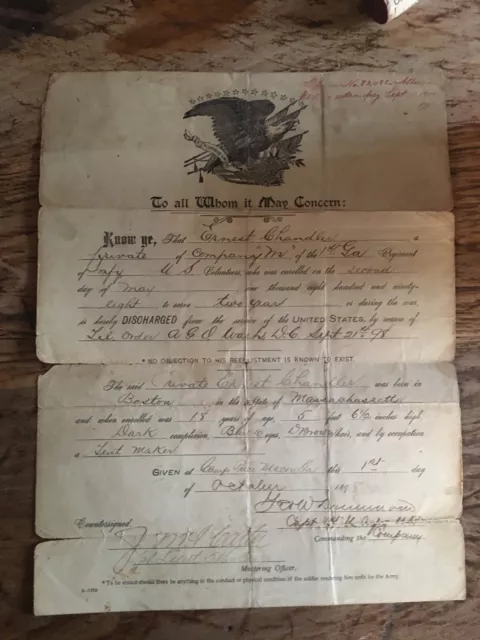 No. 82,082
Sept
To all Whom it May Concern:
Know ye, That Ernest Chandler a
private of Company M of the 1st Ga Regiment
of Infy U S Volunteers, who was enrolled on the second
day of May one thousand eight hundred and ninety-
eight to serve two year is during the war,
is hereby DISCHARGED from the service of the UNITED STATES, by reason of
Tel Order A G O Wash D.C. Sept 21st 98
* NO OBJECTION TO HIS REENLISTMENT IS KNOWN TO EXIST.
The said Private Ernest Chandler was born in
Boston in the State of Massachusetts
and when enrolled was 18 years of age, 5 feet 6½ inches high,
Dark complexion, eyes, Brown hair, and by occupation
a Tent Maker
GIVEN at Camp this 1st day
of October 189
Capt
Commanding the Company.
Countersigned
1st Lieut
Mustering Officer.
*To be erased should there be anything in the conduct or physical condition of the soldier rendering him unfit for the Army.